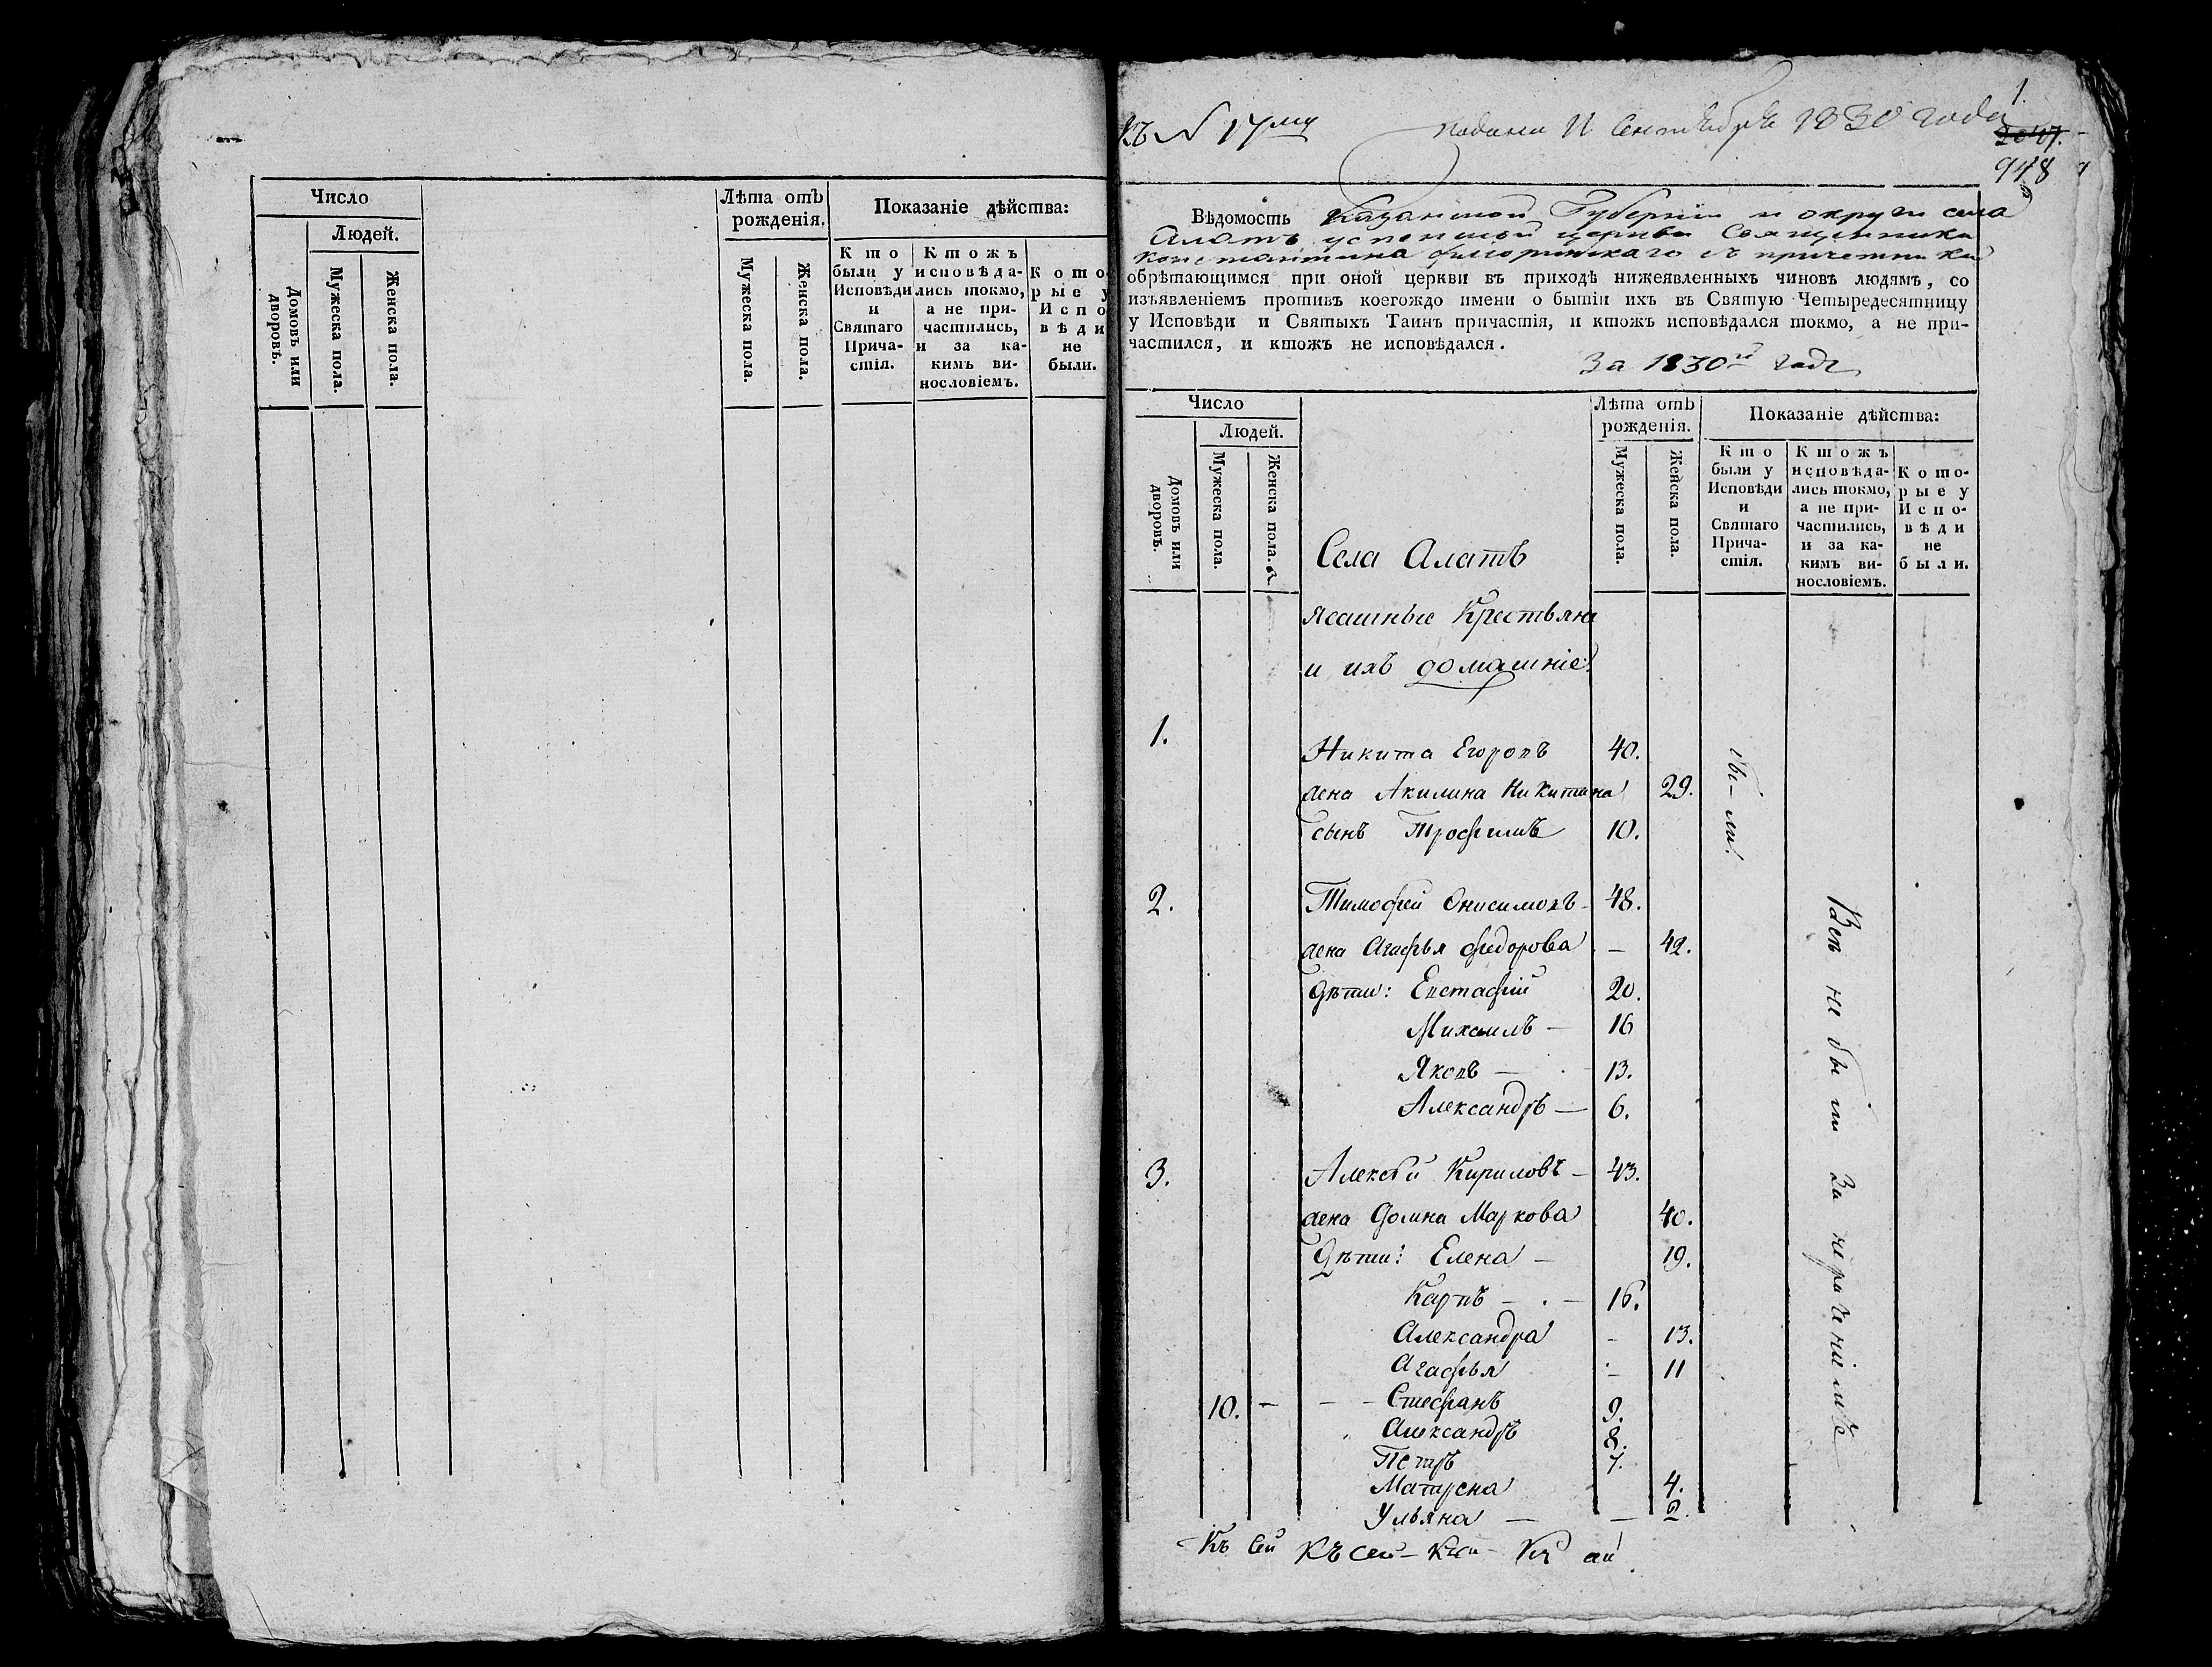 Число
Людей.
Домовъ или дворовъ.
Мужеска пола.
Женска пола.
Лѣта отъ
рожденія.
Мужеска пола.
Женска пола.
Показаніе дѣйства:
Кто
были у
Исповѣди
и
Святаго
Прича-
стія.
Ктожъ
исповѣда-
лись токмо,
а не при-
частились,
и за ка-
кимъ ви-
нословіемъ.
Кото-
рые у
Испо-
вѣди
не
были.
1.
Къ N 17му
подана 11 Сентября 1830 года
948
Вѣдомость Казанской Губерніи и округи села
Алатъ успенской церкви Священника
константина съ причетники
обрѣтающимся при оной церкви въ приходѣ нижеявленныхъ чиновъ людямъ, со
изъявленіемъ противъ коегождо имени о бытіи ихъ въ Святую Четыредесятницу
у Исповѣди и Святыхъ Таинъ причастія, и ктожъ исповѣдался токмо, а не при-
частился, и ктожъ не исповѣдался.
За 1830й годъ
Число
Людей.
Домовъ или дворовъ.
Мужеска пола.
Женска пола.
Лѣта отъ
рожденія.
Мужеска пола.
Женска пола.
Показаніе дѣйства:
Кто
были у
Исповѣди
и
Святаго
Прича-
стія.
Ктожъ
исповѣда-
лись токмо,
а не при-
частились,
и за ка-
кимъ ви-
нословіемъ.
Кото-
рые у
Испо-
вѣди
не
были.
Села Алатъ
ясашные Крестьяне
и ихъ домашніе:
1. Никита Егоровъ 40.
жена Акилина Никитина 29.
сынъ Трофимъ 10.
бы-ли
2. Тимофей Онисимовъ - 48.
жена Агафья Федорова - 42.
Дѣти: Евстафій 20.
Михаилъ - 16
Яковъ - 13.
Александръ - 6.
3. Алексѣй Кириловъ - 43.
жена Домна Маркова 40.
Дѣти: Елена - 19.
Карпъ - . - 16.
Александра - 13.
Агафья - 11
10. - - - Стефанъ 9.
Александръ 8.
Петръ 7.
Матрена 4.
Ульяна - - 2.
Всѣ не были за нераченіемъ
Къ сей Къ сей -